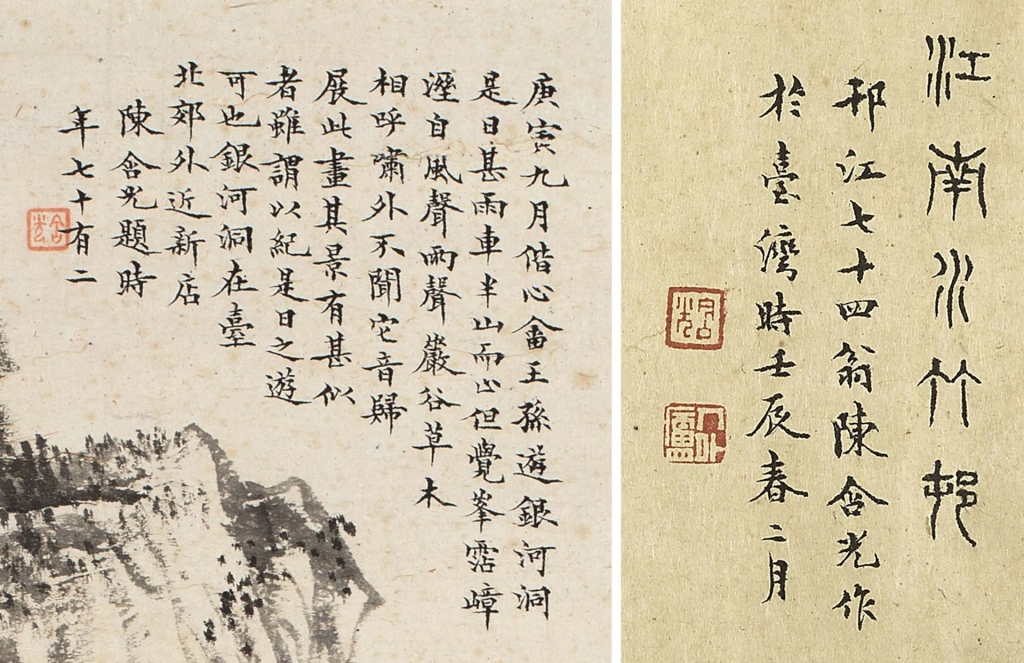 庚寅九月偕心畬王孫遊銀河洞
是日甚雨車半山而止但覺峯霑嶂
溼自風聲雨聲巖谷草木
相呼嘯外不聞它音歸
展此畫其景有甚似
者雖謂以紀是日之遊
可也銀河洞在臺
北郊外近新店
陳含光題時
年七十有二
含光
江南水竹邨
邗江七十四翁陳含光作
於臺灣時壬辰春二月
含光